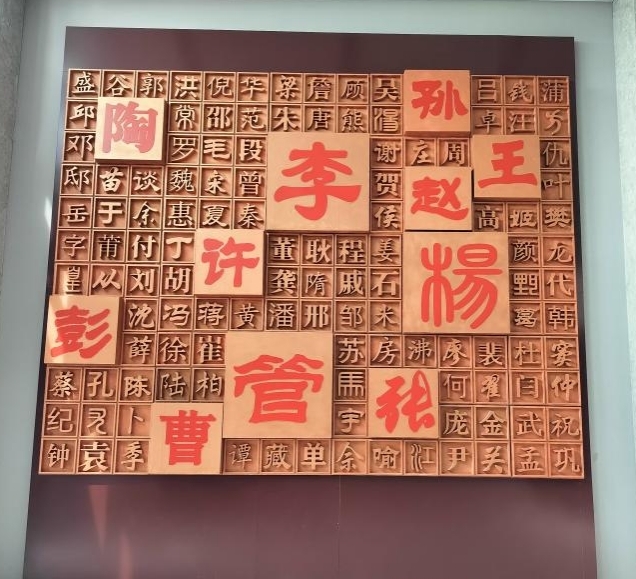 盛 谷 郭 洪 倪 华 梁 詹 顾 吴 孙 吕 钱 蒲
邱 陶 常 邵 范 朱 唐 熊 卓 汪
邓 罗 毛 段 李 谢 庄 周 王 仇
邸 苗 谈 魏 宋 曾 贺 赵 叶
岳 于 余 惠 夏 秦 侯 高 姬 樊
字 莆 付 丁 许 董 耿 程 姜 杨 颜 龙
皇 从 刘 胡 龚 隋 戚 石 野 代
彭 沈 冯 蒋 黄 潘 邢 邹 米 葛 韩
薛 徐 崔 管 苏 房 沸 廖 裴 杜 窦
蔡 孔 陈 陆 柏 馬 张 何 翟 闫 仲
纪 卜 曹 宇 庞 金 武 祝
钟 袁 季 谭 藏 单 佘 喻 江 尹 关 孟 巩